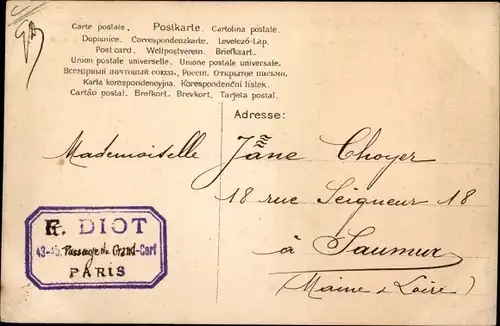 Carte postale. Postkarte. Cartolina postale.
Dopisnice. Correspondenzkarte. Levelező-Lap.
Post card. Weltpostverein. Briefkaart.
Union postale universelle. Unione postale universale.
Всемірный почтовый союзъ, Россія. Открытое письмо.
Karta korespondencyjna. Korespondenční lístek.
Cartão postal. Brefkort. Brevkort. Tarjeta postal.
Adresse:
Mademoiselle Jane Choyer
18 rue Seigneur 18
à Saumur
(Maine & Loire)
F. DIOT
43-45, Passage du Grand-Cerf
PARIS